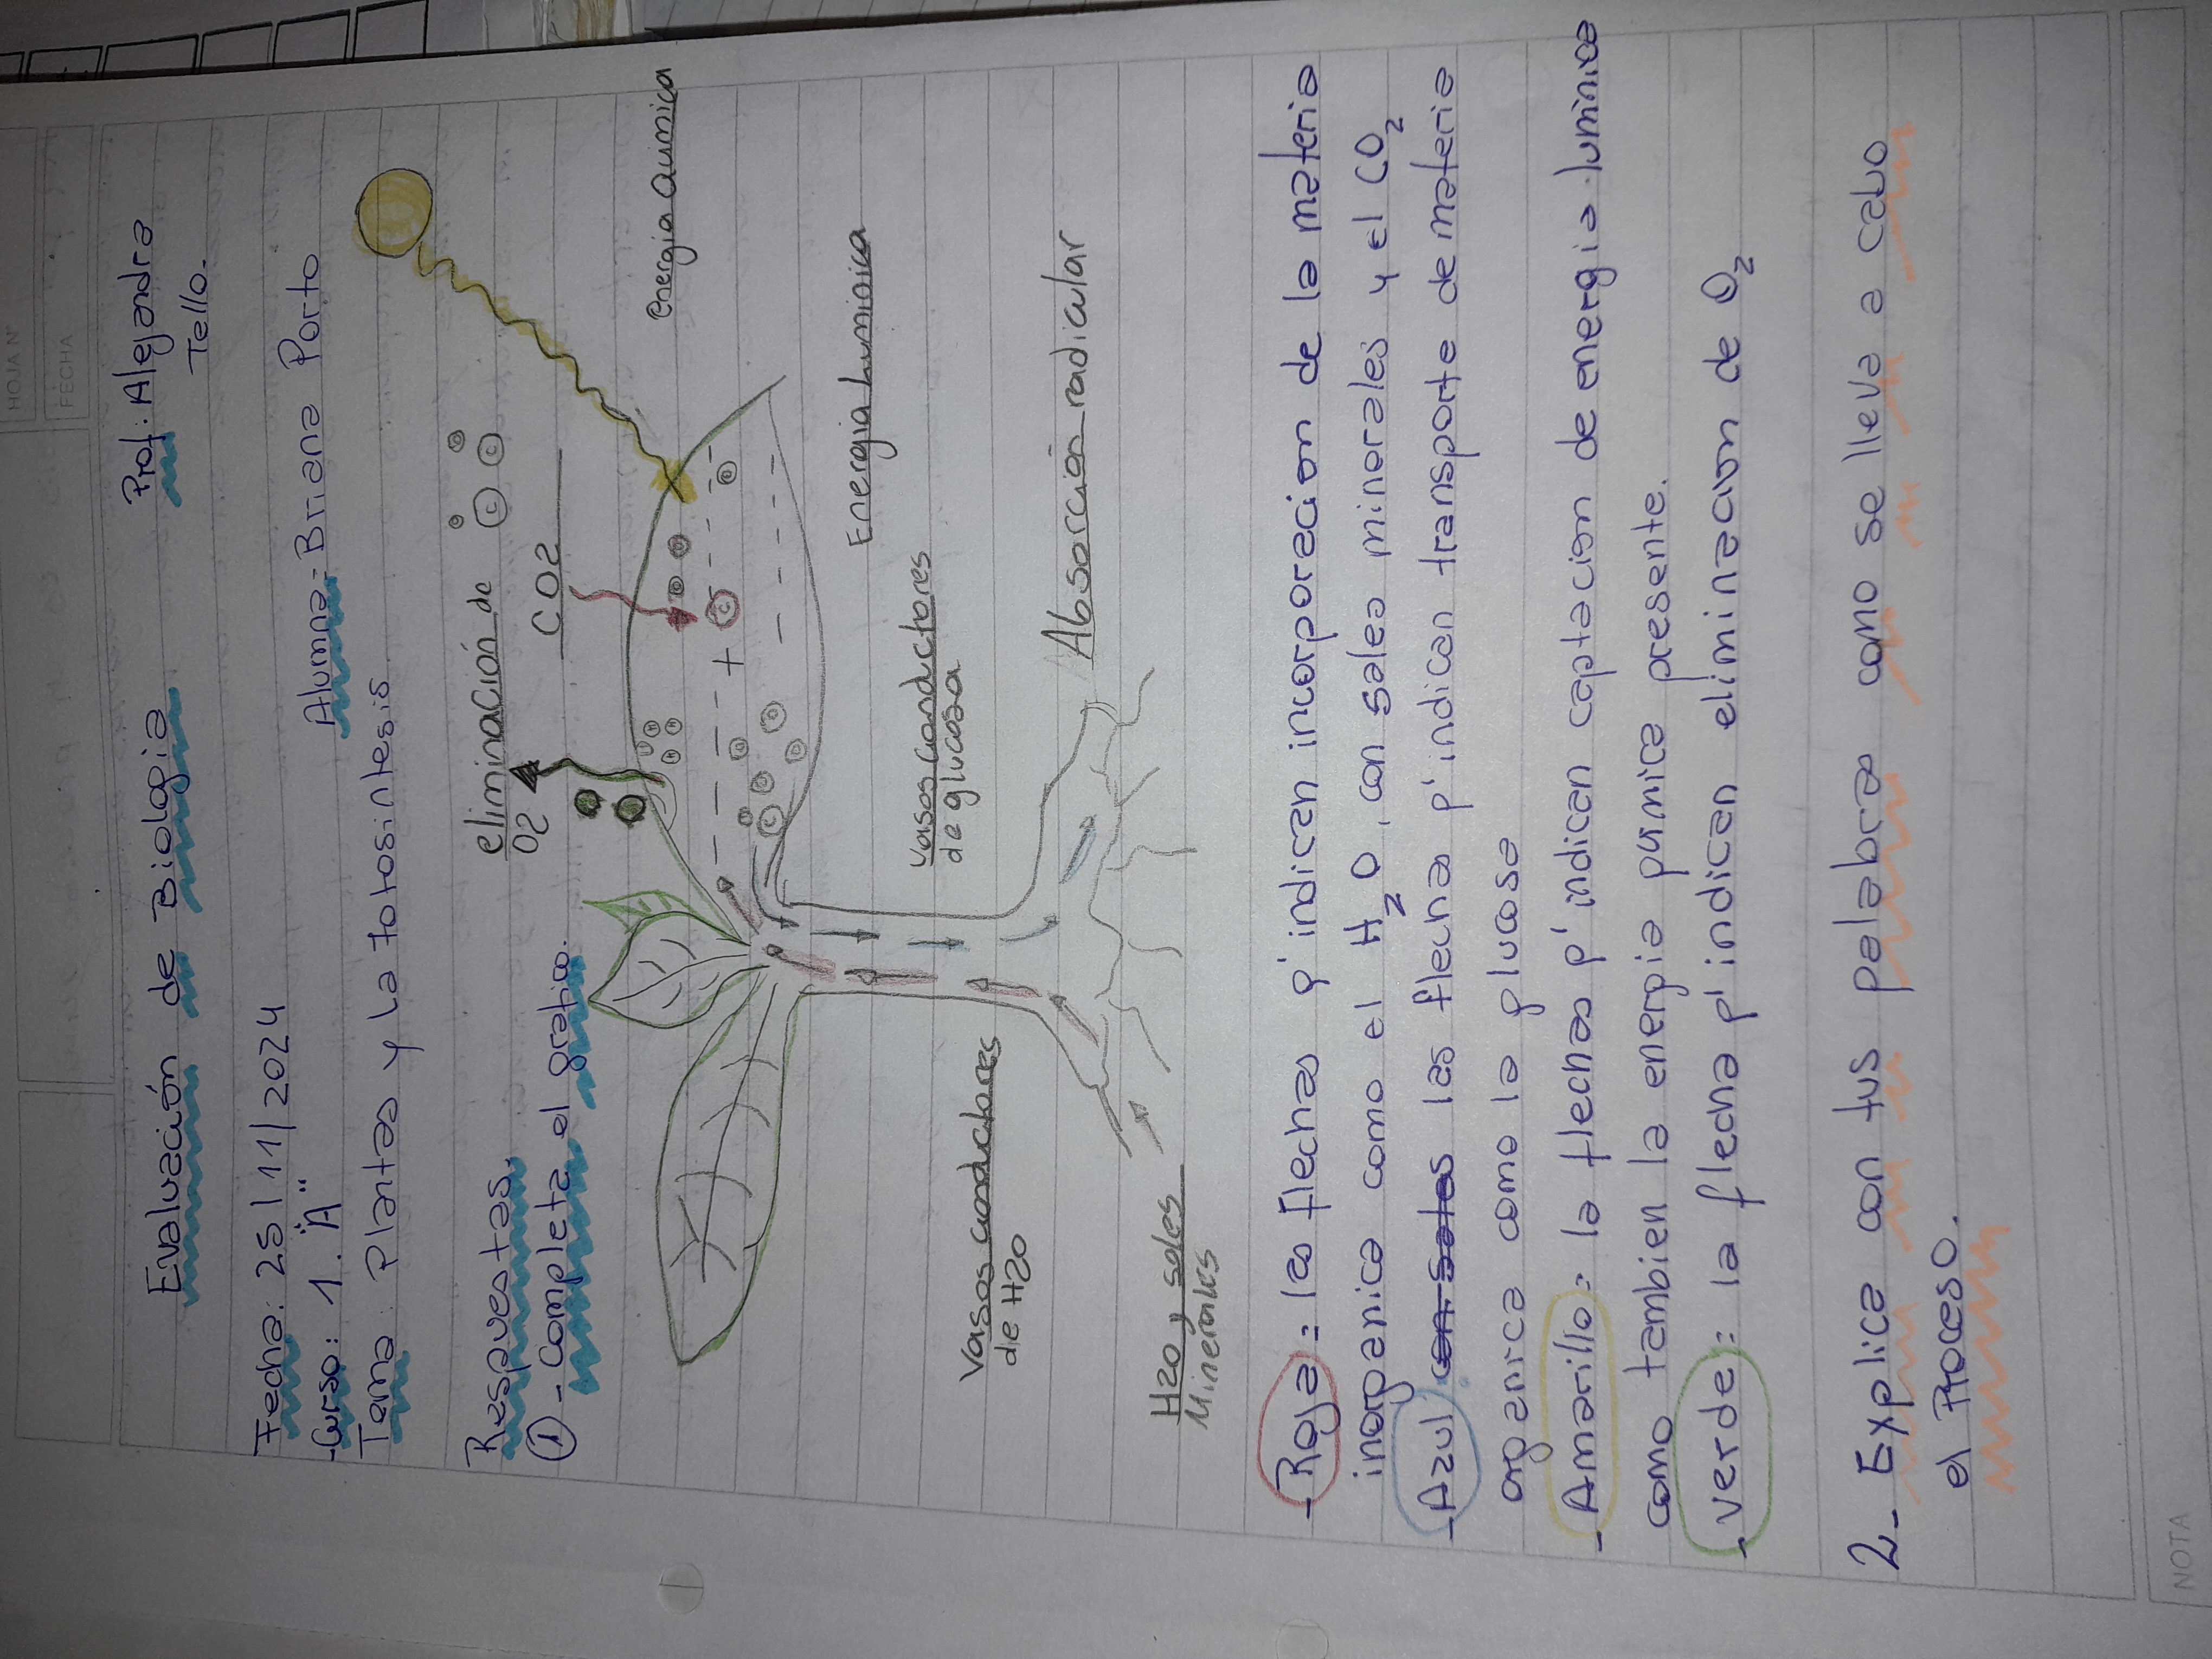 HOJA N°
FECHA
Evaluación de Biologia
Prof: Alejandra
Tello.
Fecha: 25/11/2024
-Curso: 1. "A"
Alumna: Briana Porto
Tema: Plantas y la fotosintesis
Respuestas.
① - Completa el gratico.
eliminación de
O2
CO2
energia Quimica
Energia Luminica
Vasos conductores
de glucosa
Absorción radicular
Vasos conductores
de H2O
H2O y sales
Minerales
- Roja= las flechas q' indican incorporacion de la materia
inorganica como el H2O, con sales minerales y el CO2
- Azul las flecha q' indican transporte de materia
organica como la glucosa
- Amarillo= la flechas q' indican captacion de energia luminica
como tambien la energia quimica presente.
- verde= la flecha q' indican eliminacion de O2
2- Explica con tus palabras como se lleva a cabo
el Proceso.
NOTA